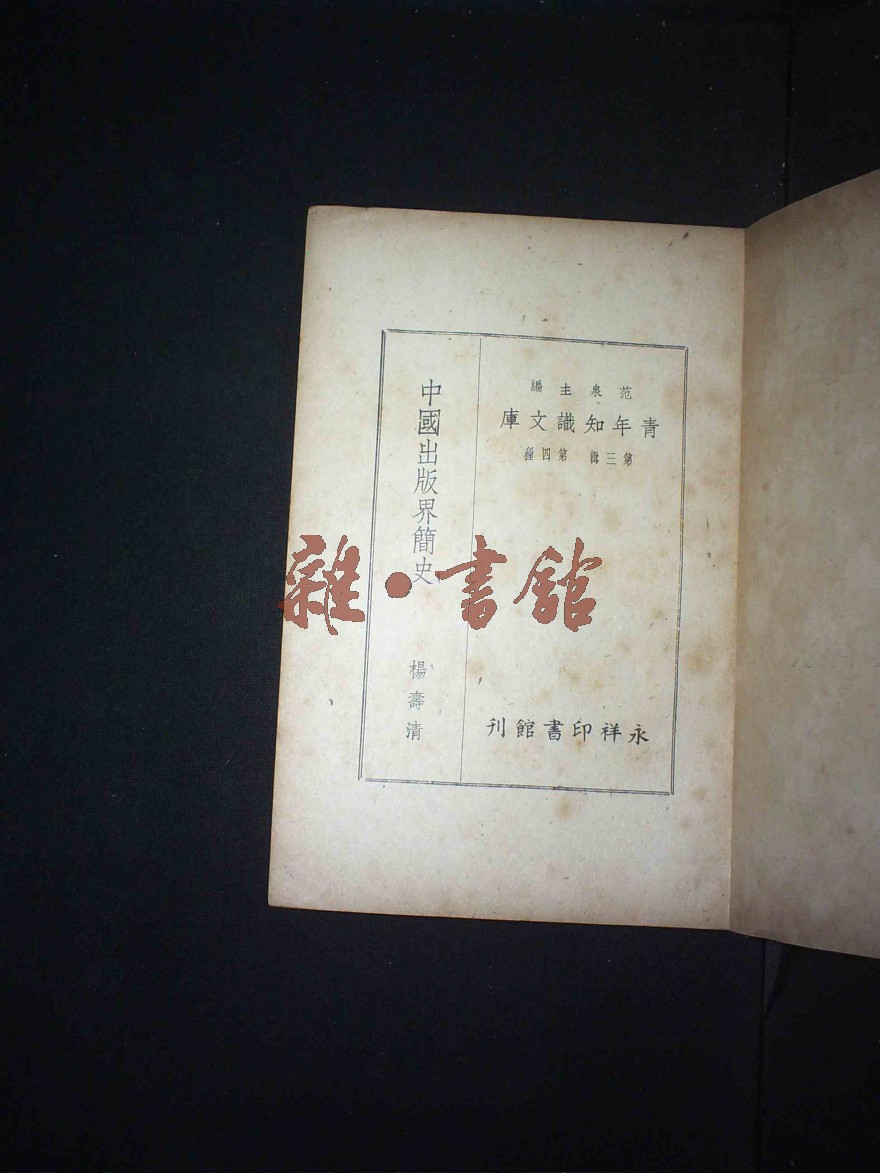 范泉主編
青年知識文庫
第三輯 第四種
永祥印書館刊
中國出版界簡史
楊壽清
雜·書館